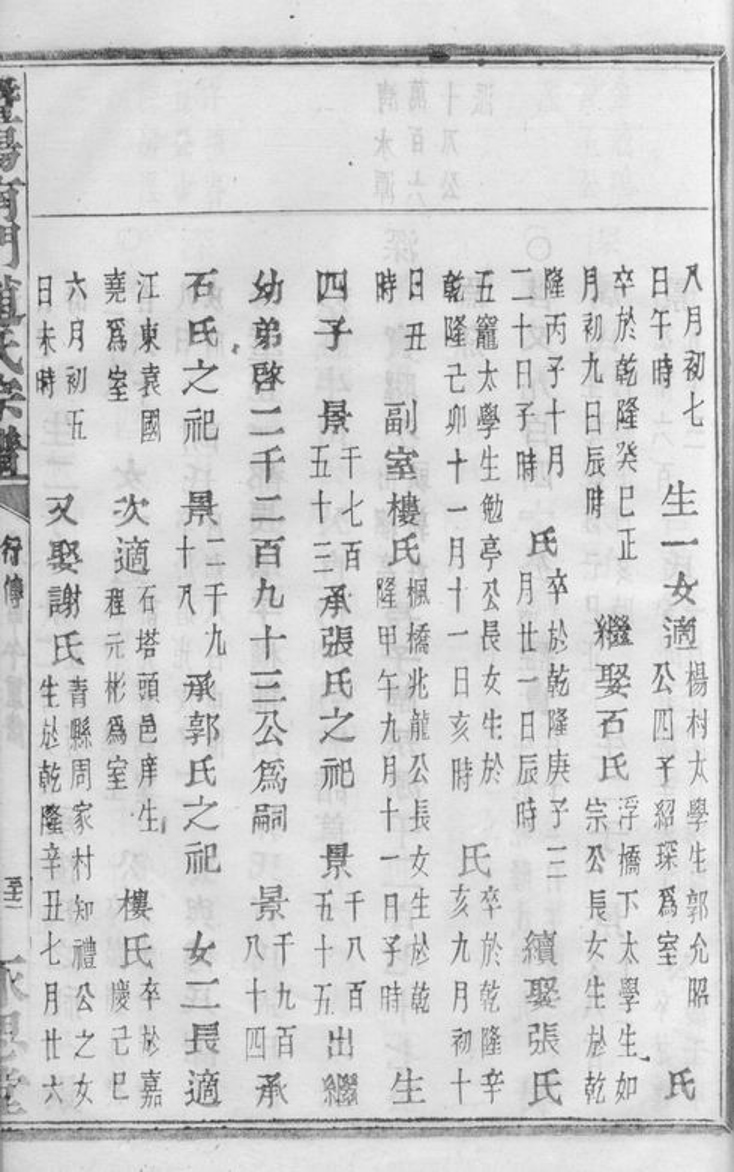 八月初七日午時生一女適楊村太學生郭允昭公四子紹琛爲室氏
卒於乾隆癸巳正月初九日辰時繼娶石氏浮橋下太學生如宗公長女生於乾
隆丙子十月二十日子時氏卒於乾隆庚子三月廿一日辰時續娶張氏
五竈太學生勉亭公長女生於乾隆己卯十一月十一日亥時氏卒於乾隆辛亥九月初十
日丑時副室樓氏楓橋兆龍公長女生於乾隆甲午九月十一日子時生
四子景千七百五十三承張氏之祀景千八百五十五出繼
幼弟啓二千二百九十三公爲嗣景千九百八十四承
石氏之祀景二千九十八承郭氏之祀女二長適
江東袁國堯爲室次適石塔頭邑庠生程元彬爲室樓氏卒於嘉慶己巳
六月初五日未時又娶謝氏青縣周家村知禮公之女生於乾隆辛丑七月廿六
暨陽南門趙氏宗譜
行傳
永思堂